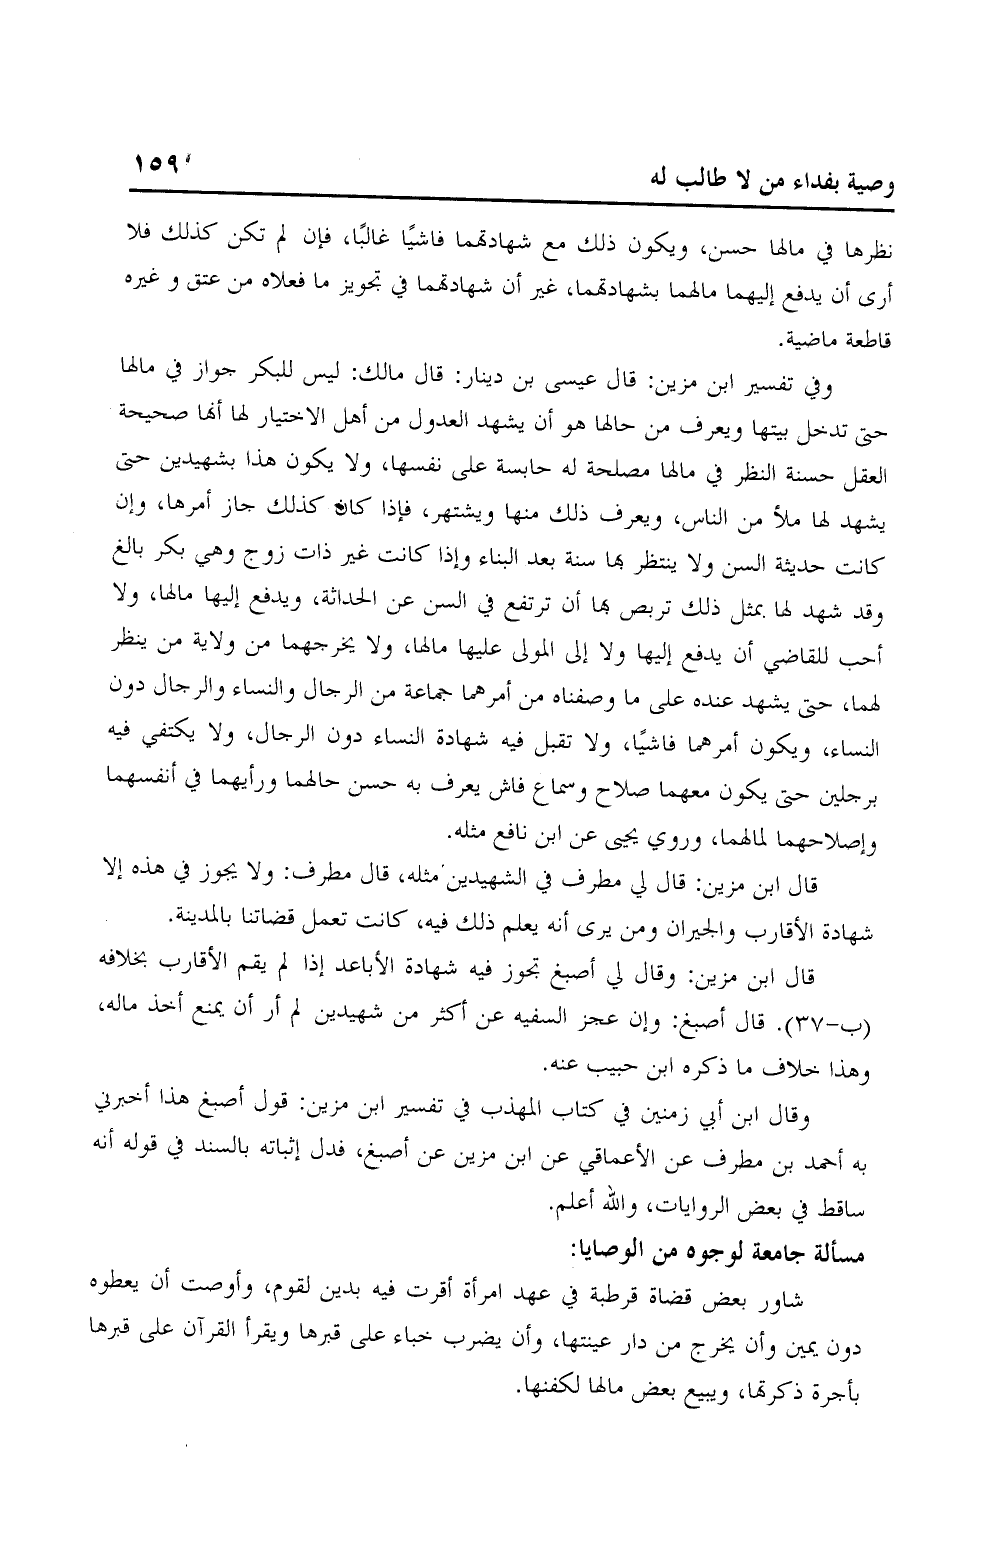 وصية بفداء من لا طالب له ١٥٩
نظرها في مالها حسن، ويكون ذلك مع شهادتهما فاشيًا غالبًا، فإن لم تكن كذلك فلا
أرى أن يدفع إليهما مالهما بشهادتهما، غير أن شهادتهما في تجويز ما فعلاه من عتق و غيره
قاطعة ماضية.
وفي تفسير ابن مزين: قال عيسى بن دينار: قال مالك: ليس للبكر جواز في مالها
حتى تدخل بيتها ويعرف من حالها هو أن يشهد العدول من أهل الاختيار لها أنها صحيحة
العقل حسنة النظر في مالها مصلحة له حابسة على نفسها، ولا يكون هذا بشهيدين حتى
يشهد لها ملأ من الناس، ويعرف ذلك منها ويشتهر، فإذا كان كذلك جاز أمرها، وإن
كانت حديثة السن ولا ينتظر بها سنة بعد البناء وإذا كانت غير ذات زوج وهي بكر بالغ
وقد شهد لها بمثل ذلك تربص بها أن ترتفع في السن عن الحداثة، ويدفع إليها مالها، ولا
أحب للقاضي أن يدفع إليها ولا إلى المولى عليها مالها، ولا يخرجهما من ولاية من ينظر
لهما، حتى يشهد عنده على ما وصفناه من أمرهما جماعة من الرجال والنساء والرجال دون
النساء، ويكون أمرهما فاشيًا، ولا تقبل فيه شهادة النساء دون الرجال، ولا يكتفي فيه
برجلين حتى يكون معهما صلاح وسماع فاش يعرف به حسن حالهما ورأيهما في أنفسهما
وإصلاحهما لمالهما، وروي يحيى عن ابن نافع مثله.
قال ابن مزين: قال لي مطرف في الشهيدين مثله، قال مطرف: ولا يجوز في هذه إلا
شهادة الأقارب والجيران ومن يرى أنه يعلم ذلك فيه، كانت تعمل قضاتنا بالمدينة.
قال ابن مزين: وقال لي أصبغ تجوز فيه شهادة الأباعد إذا لم يقم الأقارب بخلافه
(ب-٣٧). قال أصبغ: وإن عجز السفيه عن أكثر من شهيدين لم أر أن يمنع أخذ ماله،
وهذا خلاف ما ذكره ابن حبيب عنه.
وقال ابن أبي زمنين في كتاب المهذب في تفسير ابن مزين: قول أصبغ هذا أخبرني
به أحمد بن مطرف عن الأعماقي عن ابن مزين عن أصبغ، فدل إثباته بالسند في قوله أنه
ساقط في بعض الروايات، والله أعلم.
مسألة جامعة لوجوه من الوصايا:
شاور بعض قضاة قرطبة في عهد امرأة أقرت فيه بدين لقوم، وأوصت أن يعطوه
دون يمين وأن يخرج من دار عينتها، وأن يضرب خباء على قبرها ويقرأ القرآن على قبرها
بأجرة ذكرتها، ويبيع بعض مالها لكفنها.